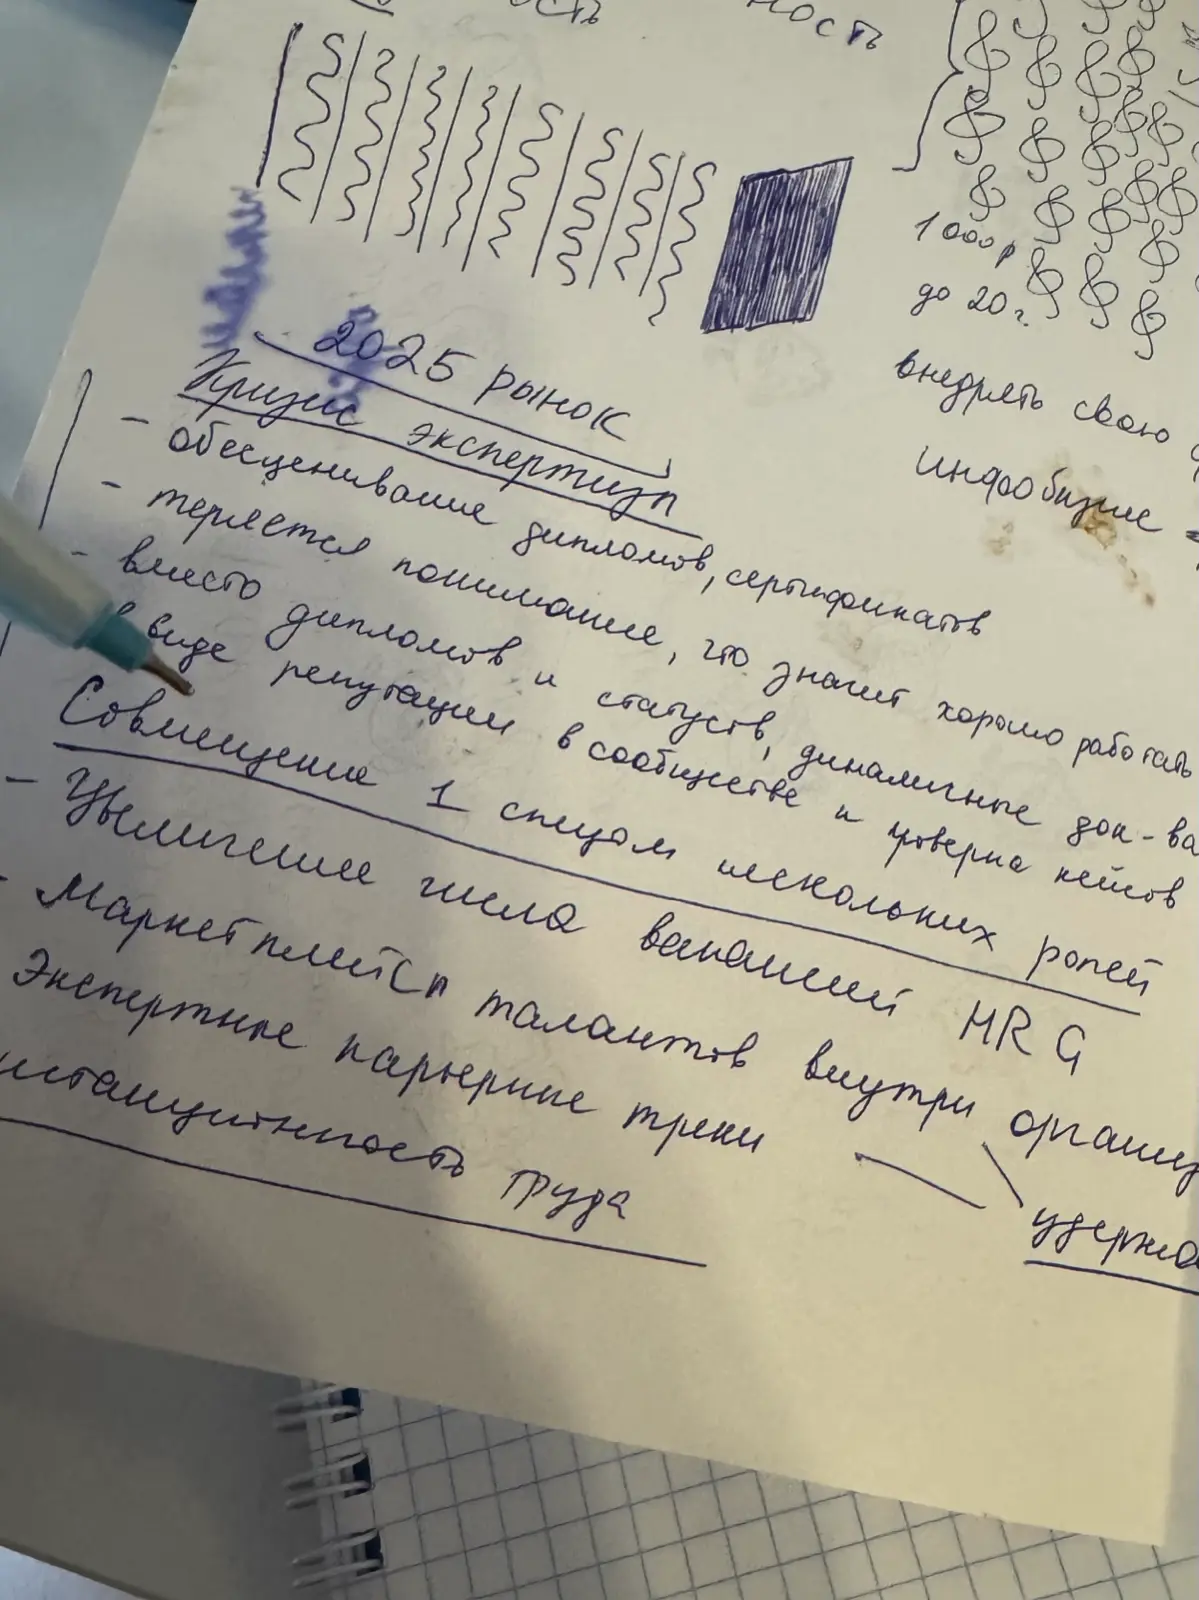 ность
1000р
до 20г.
внедрять свою
инфобизнес
2025 рынок
Кризис экспертизы
- обесценивание дипломов, сертификатов
- теряется понимание, что значит хорошо работать
- вместо дипломов и статусов, динамичные док-ва
в виде репутации в сообществе и проверка кейсов
Совмещение 1 спецом нескольких ролей
- Увеличение числа вакансий HR G
- Маркетплейсы талантов внутри
Экспертные карьерные треки
труда